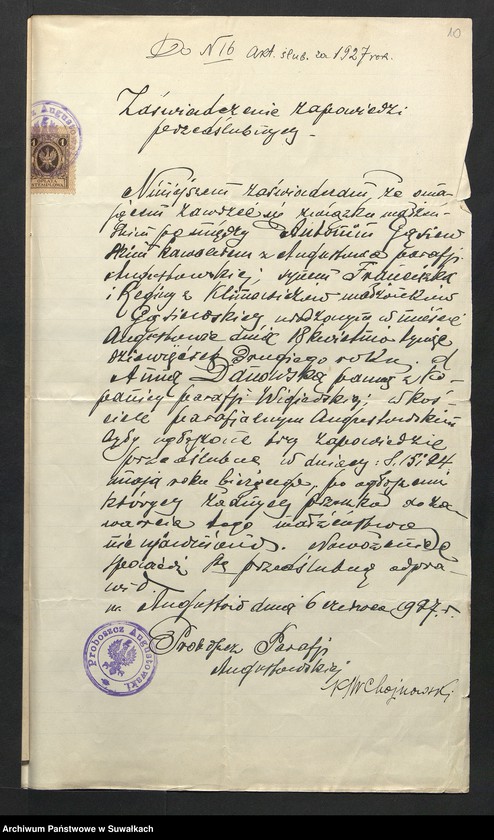 10
Do N 16 Akt. ślub. za 1927 rok.
Zaświadczenie zapowiedzi
przedślubnej
Niniejszem zaświadczam, że ma-
jącemu zawrzeć się związku małżeń-
skim pomiędzy Antonim Gąsiew-
skim kawalerem z Augustowa parafji
Augustowskiej, synem Franciszka
i Reginy z Klimowiczów małżonków
Gąsiewskich urodzonym w mieście
Augustowie dnia 18 kwietnia tysiąc
dziewięćset drugiego roku, a
Anną Danowską panną z Ko-
panicy parafji Wigierskiej w koś-
ciele parafjalnym Augustowskim
były ogłoszone trzy zapowiedzie
przedślubne w dniach: 8, 15 i 24
maja roku bieżącego, po ogłoszeniu
których żadnych przeszkód do za-
warcia tego małżeństwa
nie ujawniono. Nowożeńcy
spowiedź przedślubną odpra-
wili.
m. Augustów dnia 6 czerwca 927 r.
Proboszcz Parafji
Augustowskiej
Ks W Chojnowski
Proboszcz Augustowski
1
OPŁATA STEMPLOWA
Archiwum Państwowe w Suwałkach